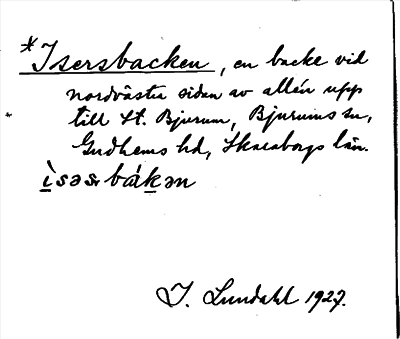 *Isersbacken, en backe vid
nordvästra sidan av allén upp
till St. Bjurum, Bjurums sn,
Gudhems hd, Skaraborgs län.
ìsəsr bákən
I. Lundahl 1927.